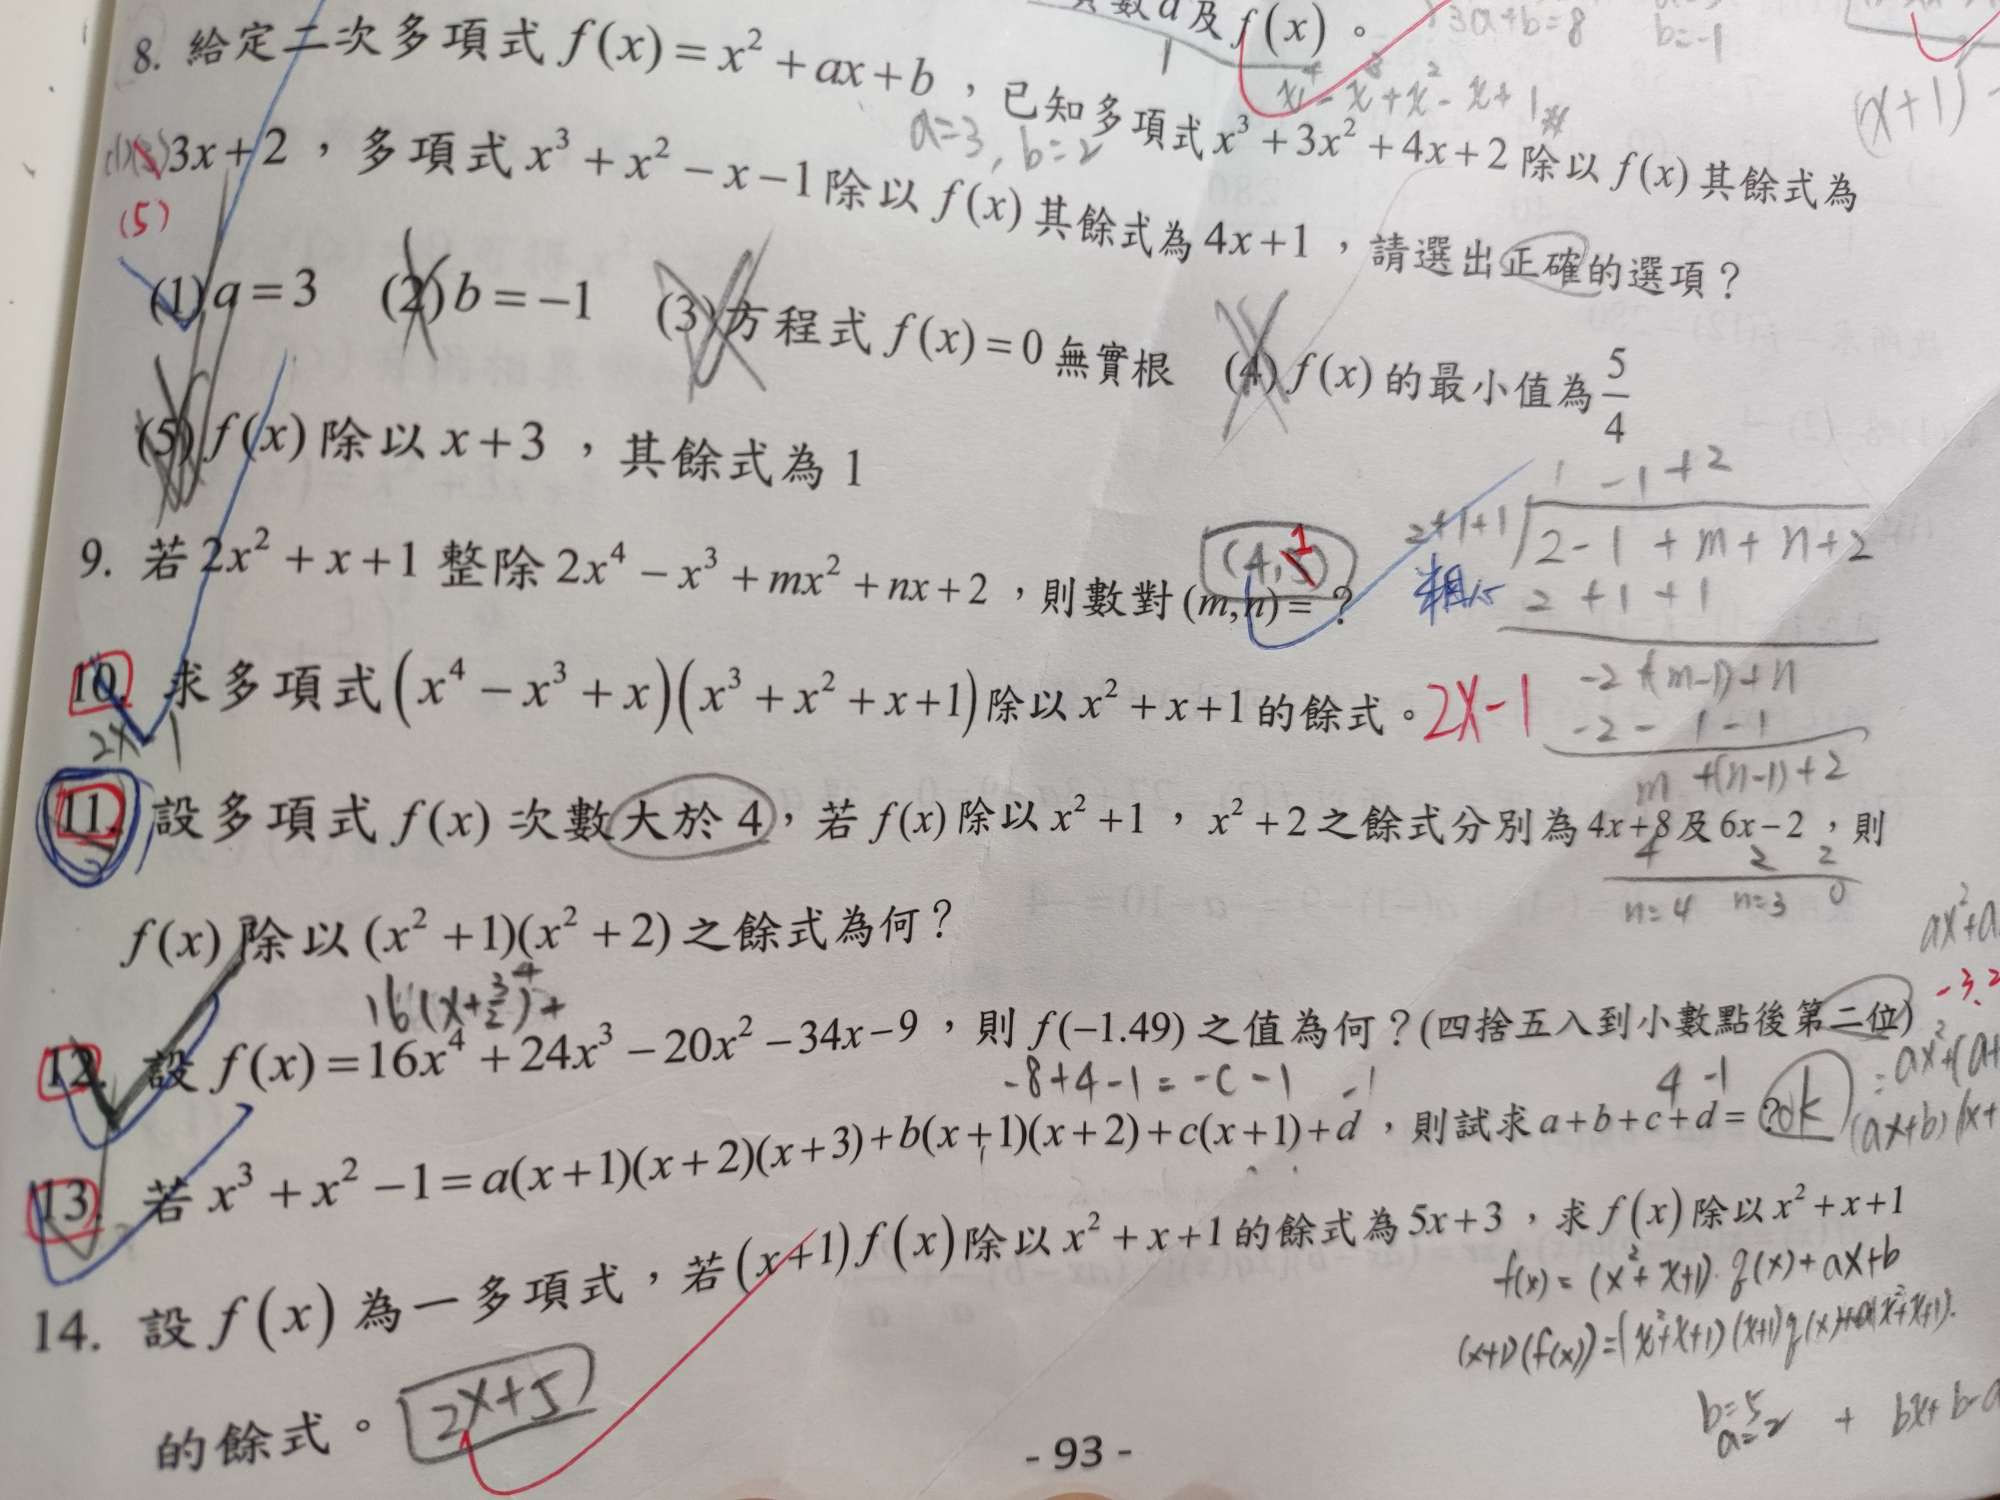 數a及f(x)。
3a+b=8 b=-1
x⁴-x³+x²-x+1
(x+1)
8. 給定二次多項式 f(x)=x²+ax+b，已知多項式 x³+3x²+4x+2 除以 f(x) 其餘式為
a=3, b=2
3x+2，多項式 x³+x²-x-1 除以 f(x) 其餘式為 4x+1，請選出正確的選項？
(5)
(1) a=3 (2) b=-1 (3) 方程式 f(x)=0 無實根 (4) f(x) 的最小值為 5/4
(5) f(x) 除以 x+3，其餘式為 1
1 -1 +2
2+1+1 2-1+m+n+2
9. 若 2x²+x+1 整除 2x⁴-x³+mx²+nx+2，則數對 (m,n)=？
(4,1)
粗心
2 +1 +1
-2+(m-1)+n
-2 - 1 - 1
m +(n-1)+2
4 2 2
n=4 n=3 0
10. 求多項式 (x⁴-x³+x)(x³+x²+x+1) 除以 x²+x+1 的餘式。 2x-1
2x-1
11. 設多項式 f(x) 次數大於 4，若 f(x) 除以 x²+1，x²+2 之餘式分別為 4x+8 及 6x-2，則
f(x) 除以 (x²+1)(x²+2) 之餘式為何？
16(x+3/2)⁴+
12. 設 f(x)=16x⁴+24x³-20x²-34x-9，則 f(-1.49) 之值為何？(四捨五入到小數點後第二位)
-8+4-1=-c-1 -1
4 -1
13. 若 x³+x²-1=a(x+1)(x+2)(x+3)+b(x+1)(x+2)+c(x+1)+d，則試求 a+b+c+d=？
ok
14. 設 f(x) 為一多項式，若 (x+1)f(x) 除以 x²+x+1 的餘式為 5x+3，求 f(x) 除以 x²+x+1
的餘式。 2x+5
f(x)=(x²+x+1)·q(x)+ax+b
(x+1)(f(x))=(x²+x+1)(x+1)q(x)+a(x²+x+1).
b=5
a=2 + bx+b-a
- 93 -